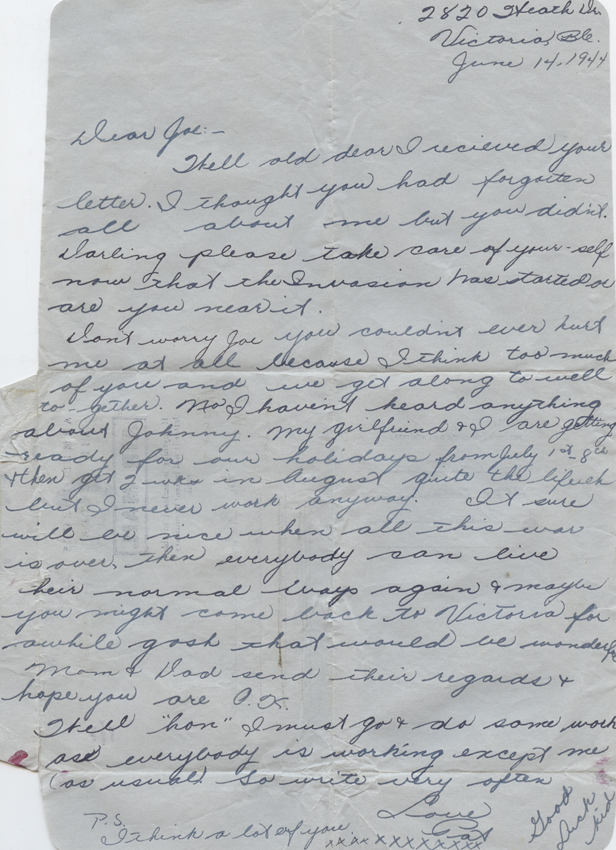 2820 Heath Dr.
Victoria, B.C.
June 14, 1944
Dear Joe:-
Well old dear I recieved your
letter. I thought you had forgotten
all about me but you didn't
Darling please take care of your-self
now that the Invasion has started or
are you near it.
Don't worry Joe you couldn't ever hurt
me at all because I think too much
of you and we get along to well
to-gether. No I haven't heard anything
about Johnny. My girlfriend & I are getting
ready for our holidays from July 1st 8th
& then get 2 wks in August quite the life eh
but I never work anyway. It sure
will be nice when all this war
is over, then everybody can live
their normal ways again & maybe
you might come back to Victoria for
awhile gosh that would be wonderful
Mom & Dad send their regards &
hope you are O.K.
Well "hon" I must go & do some work
as everybody is working except me
(as usual) So write very often
Love
Pat
xxxxxxxxxxxx
P.S.
I think a lot of you
Good
Luck
kid